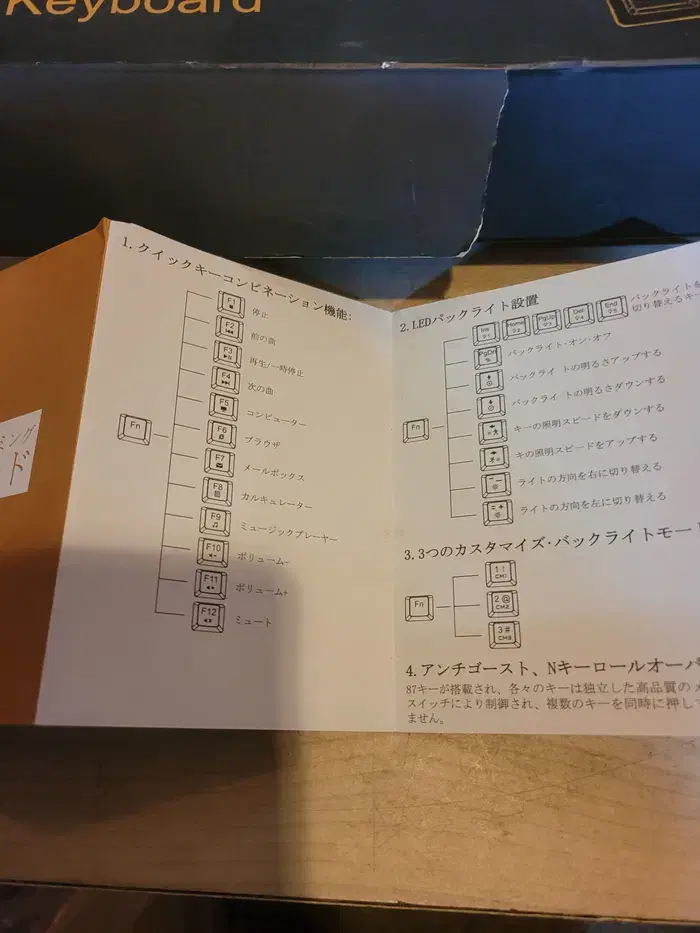 Keyboard
ミング
ド
1.クイックキーコンビネーション機能:
Fn
F1
停止
F2
前の曲
F3
再生/一時停止
F4
次の曲
F5
コンピューター
F6
ブラウザ
F7
メールボックス
F8
カルキュレーター
F9
ミュージックプレーヤー
F10
ボリューム-
F11
ボリューム+
F12
ミュート
2.LEDバックライト設置
Fn
Ins
Home
PgUp
Del
End
バックライトを
切り替えるキー
PgDn
バックライト·オン·オフ
バックライ トの明るさアップする
バックライ トの明るさダウンする
キーの照明スピードをダウンする
キの照明スピードをアップする
ライトの方向を右に切り替える
ライトの方向を左に切り替える
3.3つのカスタマイズ·バックライトモー
Fn
1 !
CM1
2 @
CM2
3 #
CM3
4.アンチゴースト、Nキーロールオーバ
87キーが搭載され、各々のキーは独立した高品質の
スイッチにより制御され、複数のキーを同時に押して
ません。